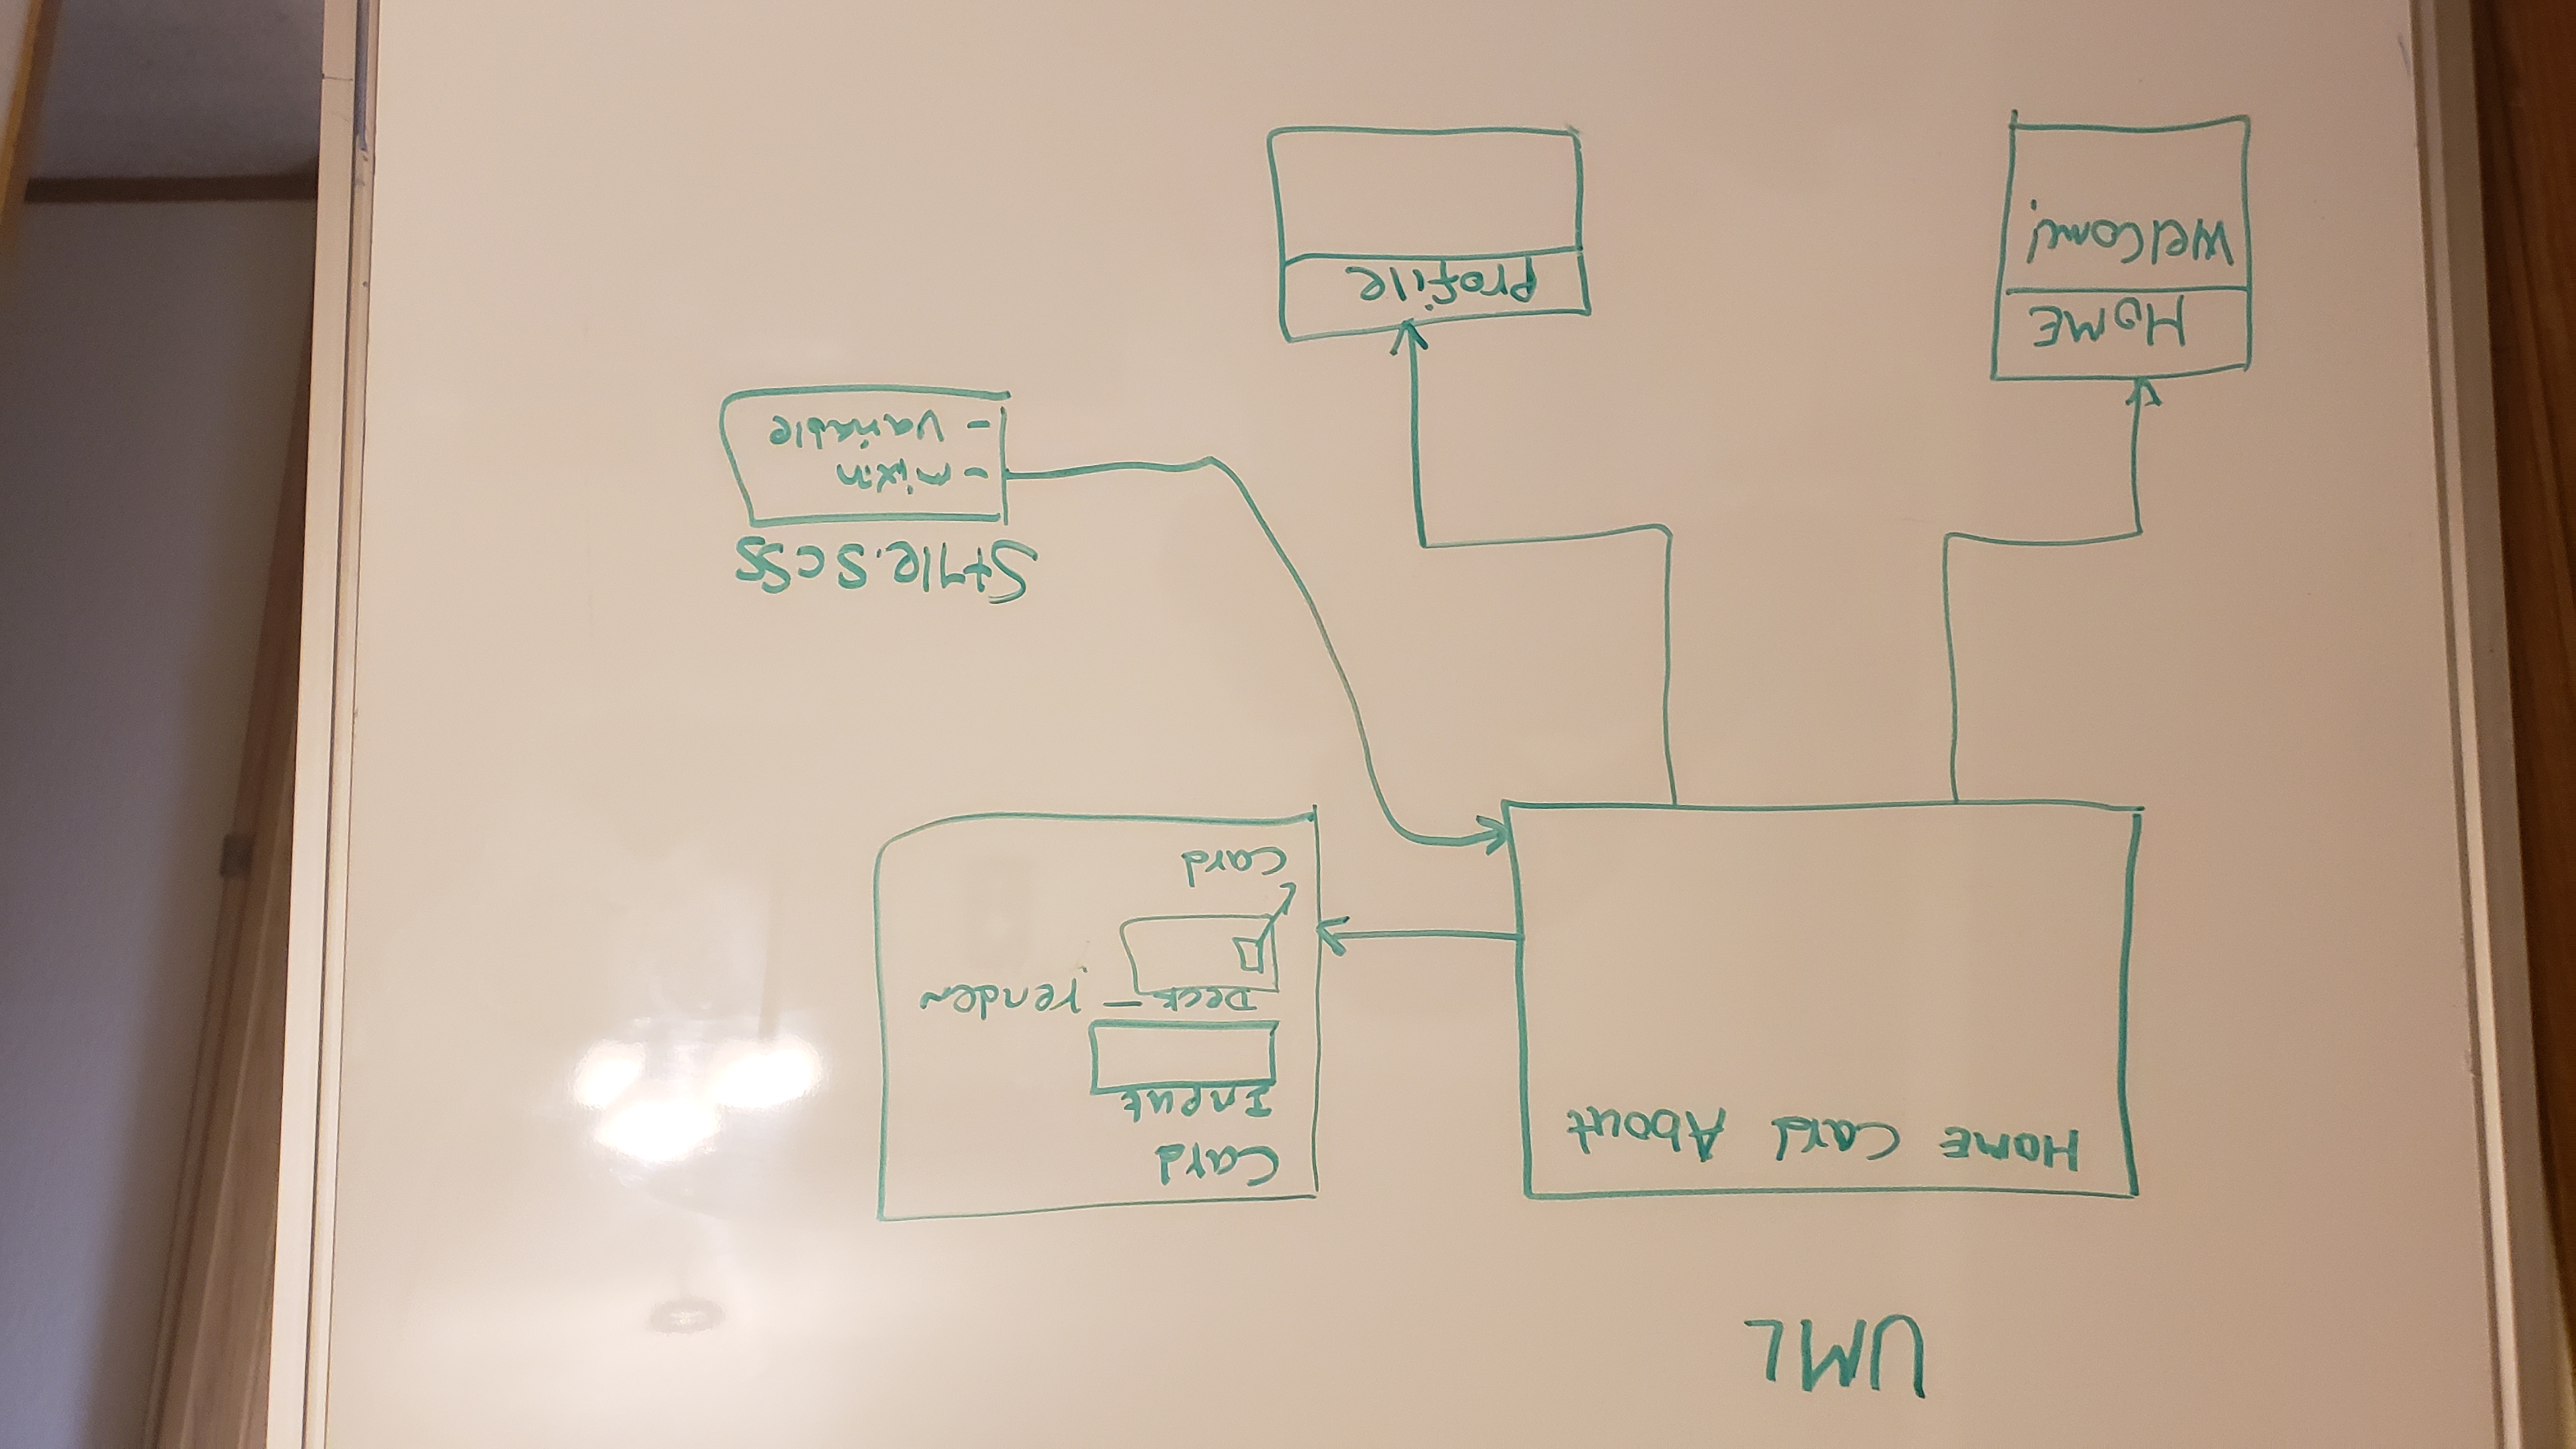 UML
HOME Card About
Card
Input
Deck - render
Card
Style.scss
- mixin
- variable
HOME
Welcome!
Profile